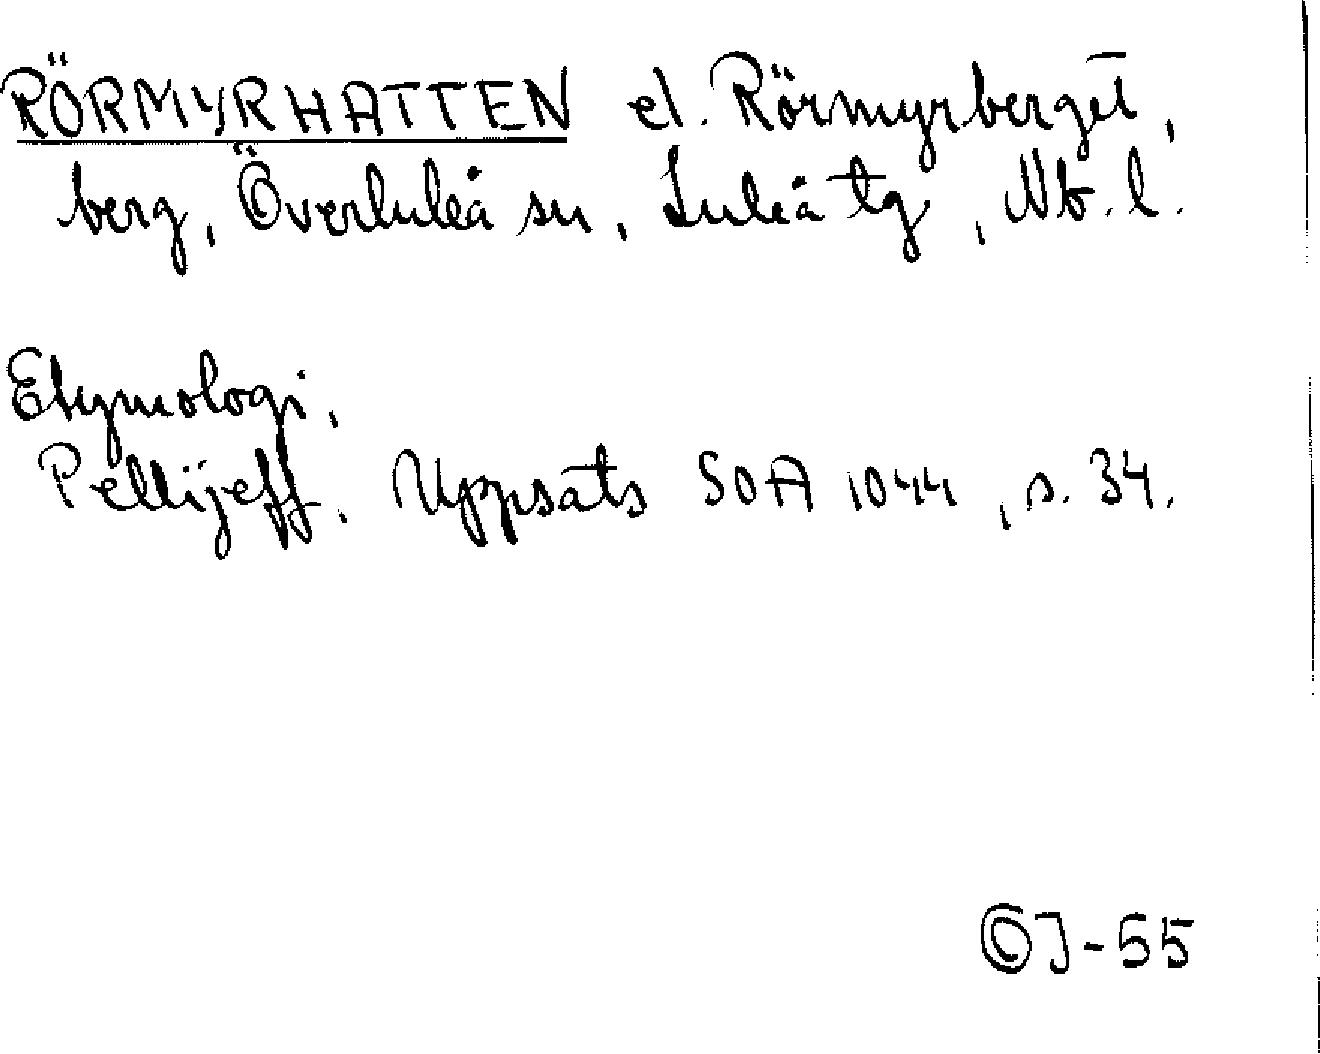 RÖRMYRHATTEN el. Rörmyrberget,
berg, Överluleå sn, Luleå tg, Nb. l.
Etymologi.
Pellijeff, Uppsats SOA 1044, s. 34.
©J-55